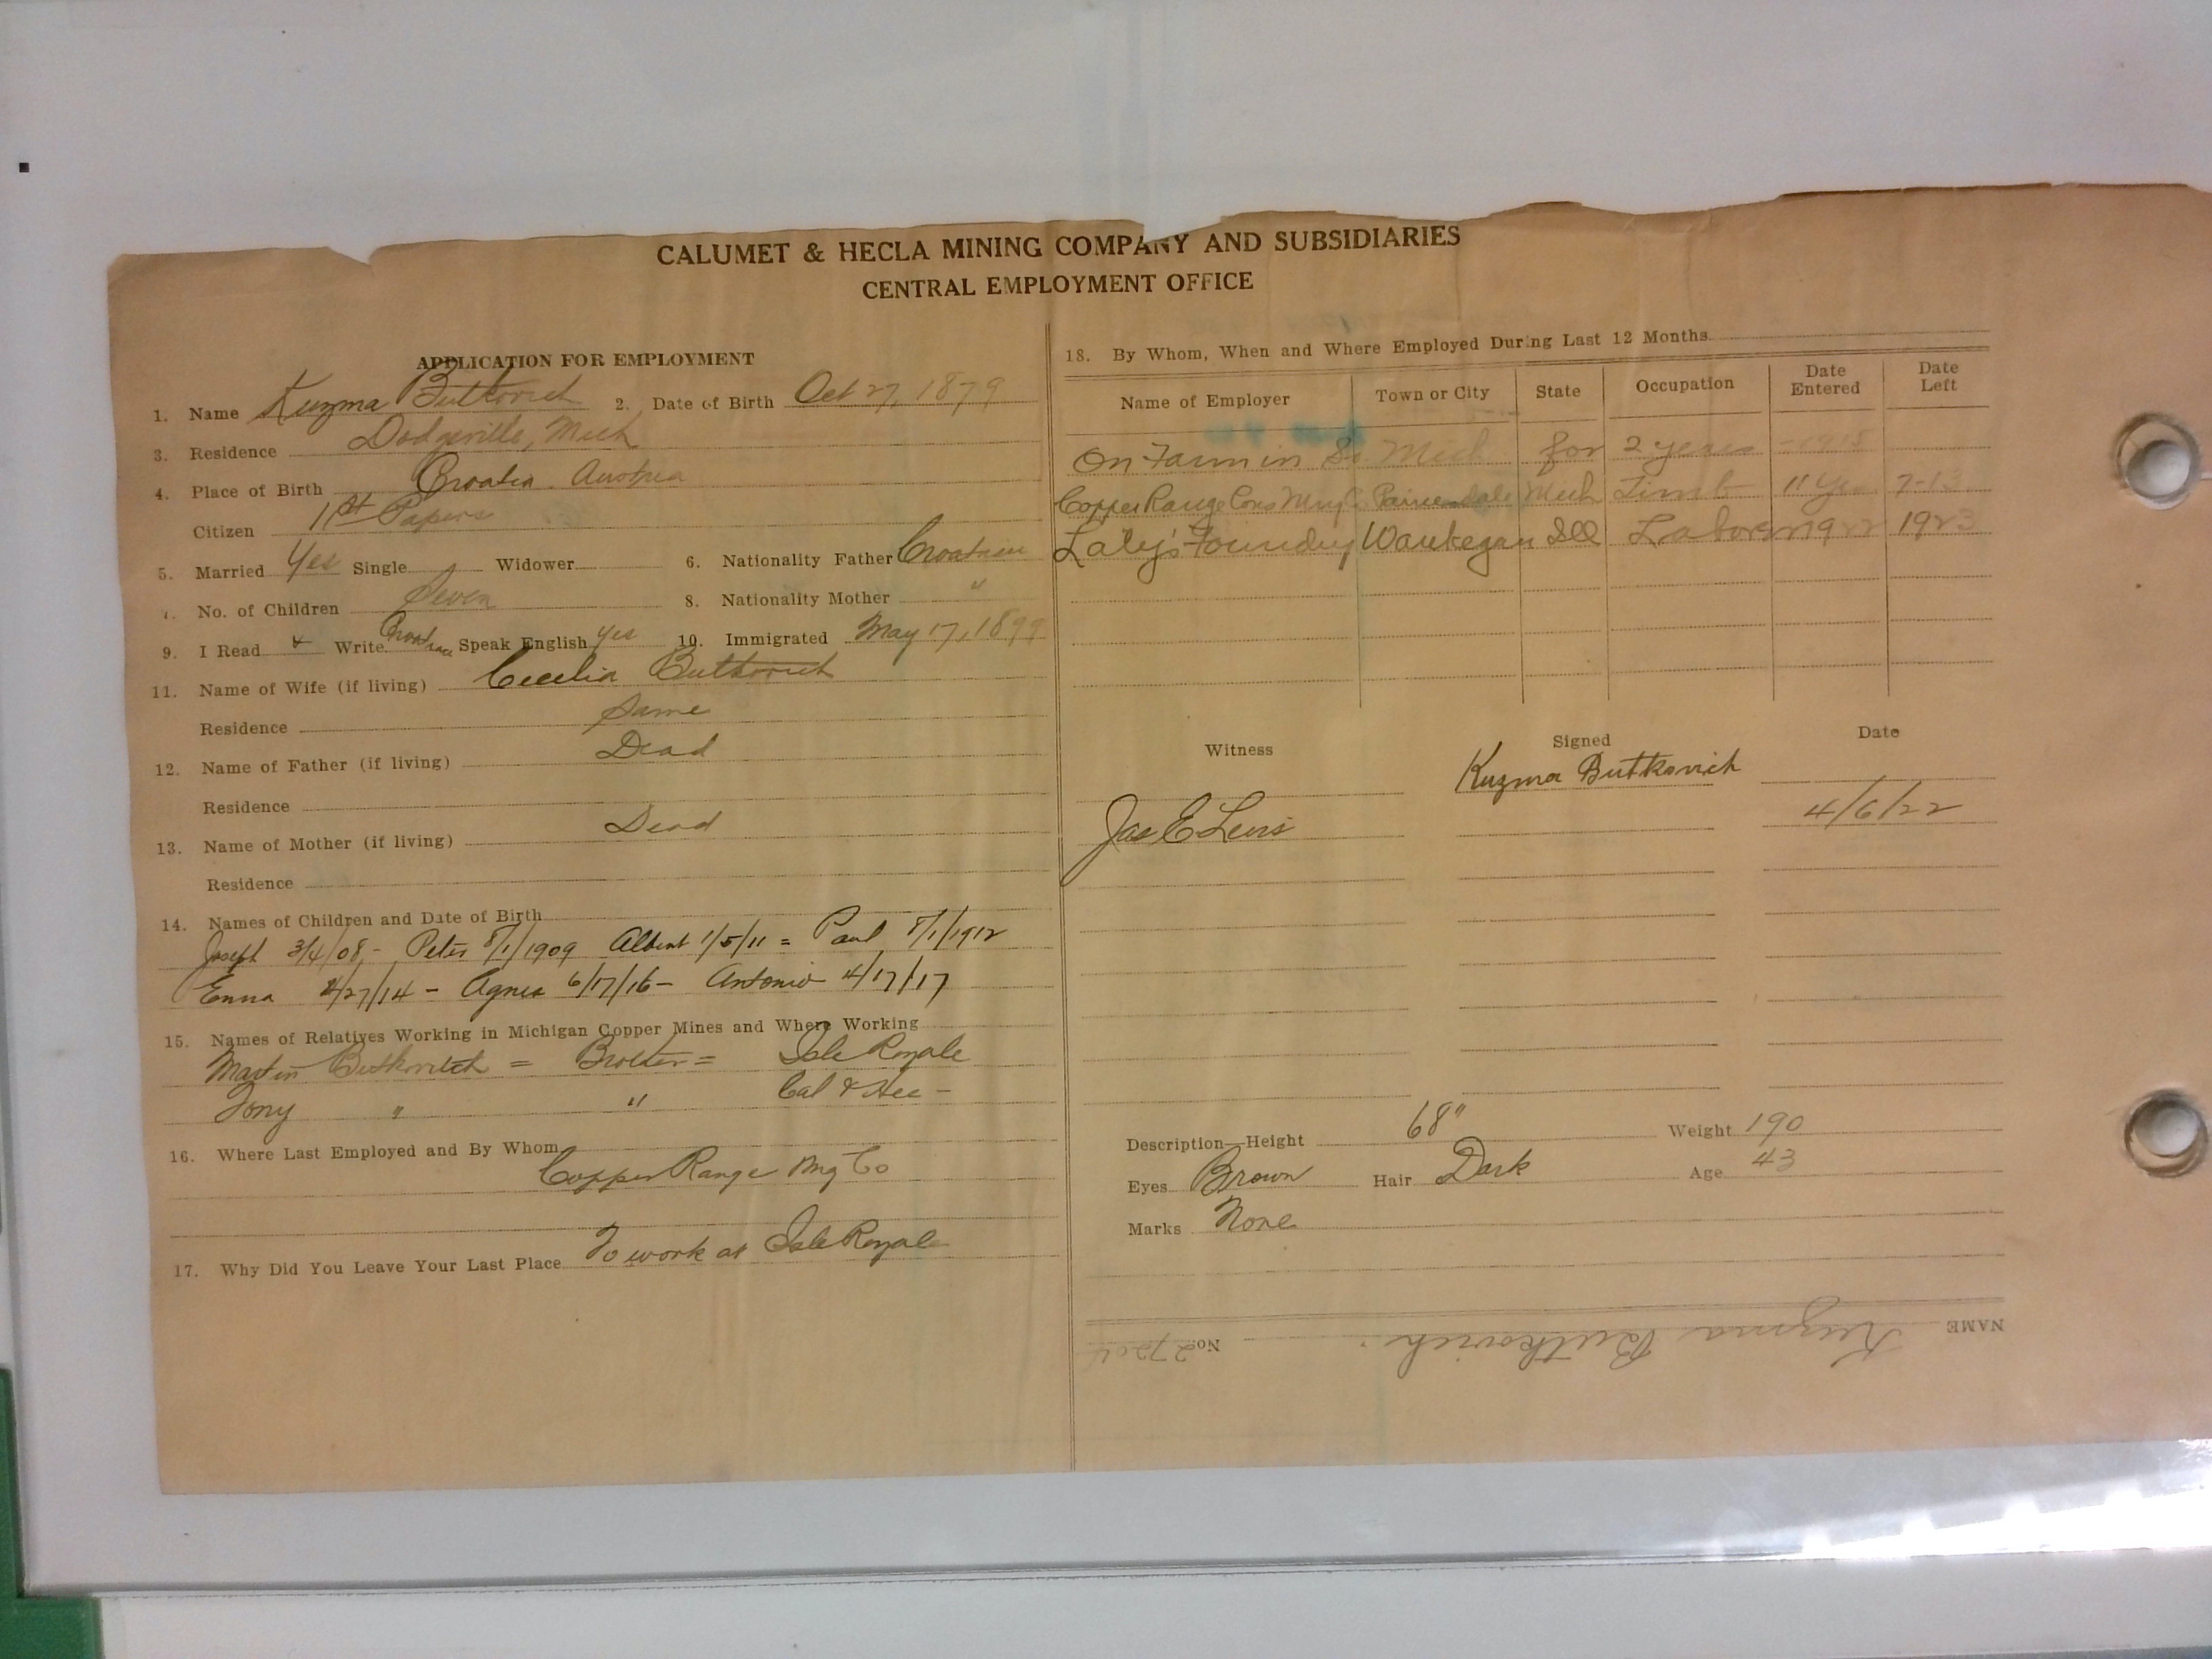 CALUMET & HECLA MINING COMPANY AND SUBSIDIARIES
CENTRAL EMPLOYMENT OFFICE
APPLICATION FOR EMPLOYMENT
1. Name Kuzma Butkovich 2. Date of Birth Oct 27, 1879
3. Residence Dodgeville, Mich
4. Place of Birth Croatia. Austria
Citizen 1st Papers
5. Married Yes Single Widower 6. Nationality Father Croatian
7. No. of Children Seven 8. Nationality Mother "
9. I Read & Write Croatian Speak English Yes 10. Immigrated May 17, 1899
11. Name of Wife (if living) Cecelia Butkovich
Residence Same
12. Name of Father (if living) Dead
Residence
13. Name of Mother (if living) Dead
Residence
14. Names of Children and Date of Birth
Joseph 3/4/08, - Peter 8/1/1909 Albert 1/5/11 = Paul 8/1/1912
Enna 2/27/14 - Agnes 6/17/16 - Antonio 4/17/17
15. Names of Relatives Working in Michigan Copper Mines and Where Working
Martin Butkovitch = Brother = Isle Royale
Tony " " Cal & Hec -
16. Where Last Employed and By Whom
Copper Range Mng Co
17. Why Did You Leave Your Last Place To work at Isle Royale
18. By Whom, When and Where Employed During Last 12 Months
Name of Employer Town or City State Occupation Date Entered Date Left
On Farm in So Mich for 2 years - 1915
Copper Range Cons Mng Co Painesdale Mich Timb 11 Yrs 7-13
Foundry Waukegan Ill Laborer 1922 1923
Witness Signed Date
Kuzma Butkovich
Jas E Lewis 4/6/22
Description—Height 68" Weight 190
Eyes Brown Hair Dark Age 43
Marks None
NAME Kuzma Butkovich. No. 27204